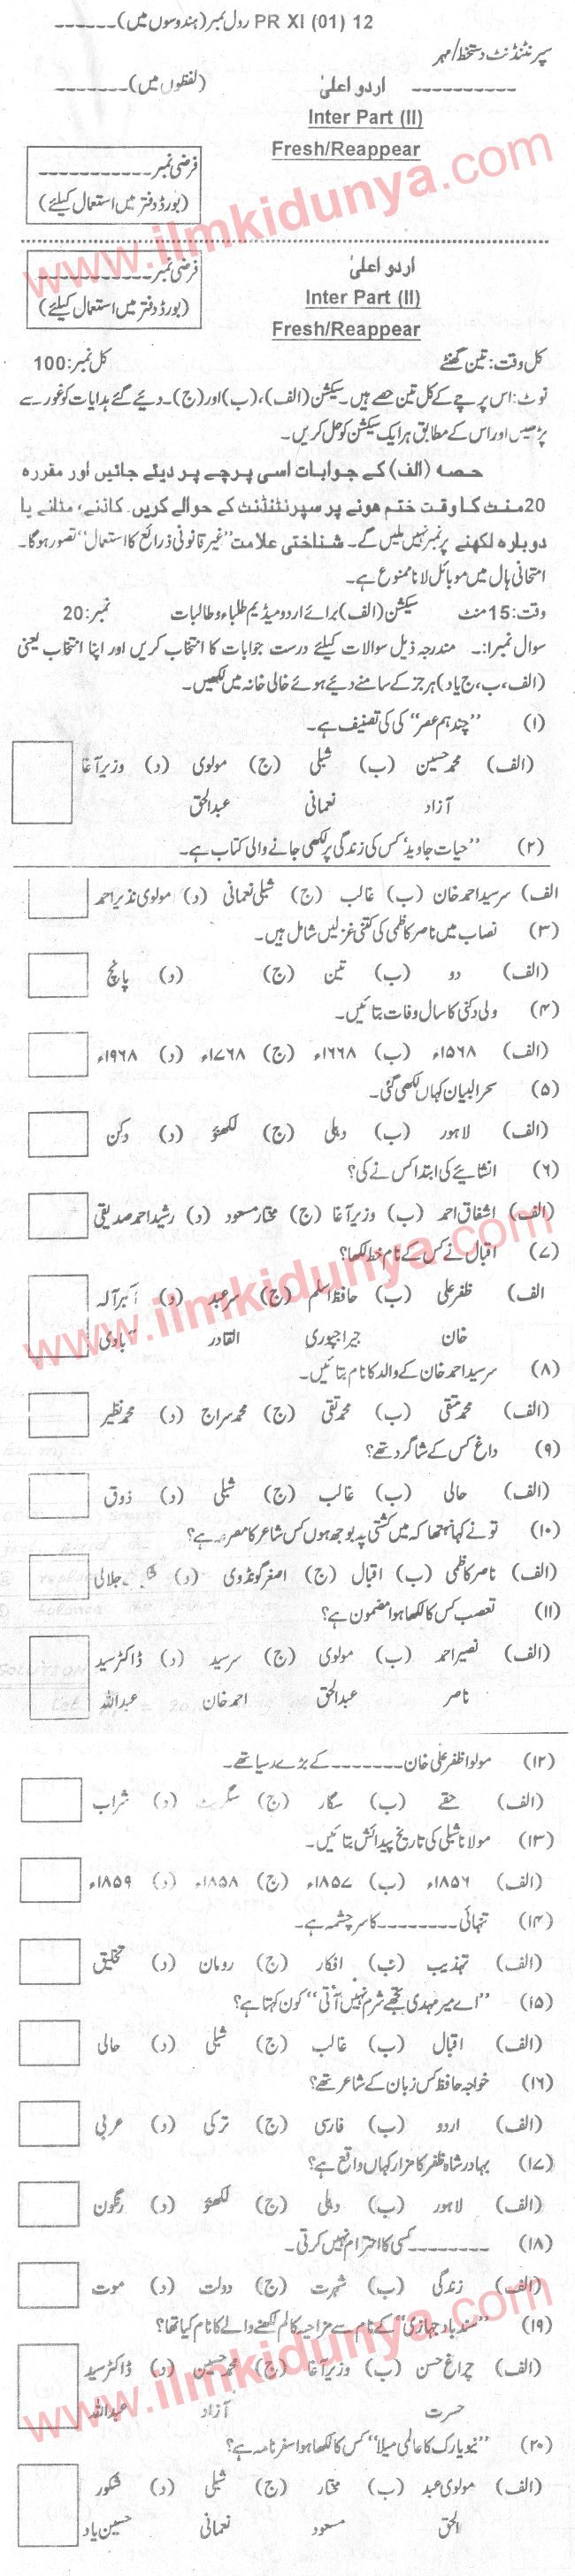 PR XI (01) 12 رول نمبر (ہندوسوں میں)۔------
سپرنٹنڈنٹ دستخط/مہر
---------- اردو اعلیٰ (لفظوں میں)-------
Inter Part (II)
Fresh/Reappear
فرضی نمبر-----------
(بورڈ دفتر میں استعمال کیلئے)
اردو اعلیٰ
Inter Part (II)
Fresh/Reappear
فرضی نمبر-----------
(بورڈ دفتر میں استعمال کیلئے)
کل وقت: تین گھنٹے کل نمبر: 100
نوٹ: اس پرچے کے کل تین حصے ہیں۔ سیکشن (الف)، (ب) اور (ج)۔ دیئے گئے ہدایات کو غور سے
پڑھیں اور اس کے مطابق ہر ایک سیکشن کو حل کریں۔
حصہ (الف) کے جوابات اسی پرچے پر دیئے جائیں اور مقررہ
20 منٹ کا وقت ختم ہونے پر سپرنٹنڈنٹ کے حوالے کریں۔ کاٹنے، مٹانے یا
دوبارہ لکھنے پر نمبر نہیں ملیں گے۔ شناختی علامت "غیر قانونی ذرائع کا استعمال" تصور ہوگا۔
امتحانی ہال میں موبائل لانا ممنوع ہے۔
وقت: 15 منٹ سیکشن (الف) برائے اردو میڈیم طلباء و طالبات نمبر: 20
سوال نمبرا:۔ مندرجہ ذیل سوالات کیلئے درست جوابات کا انتخاب کریں اور اپنا انتخاب یعنی
(الف، ب، ج یا د) ہر جز کے سامنے دیئے ہوئے خالی خانہ میں لکھیں۔
(۱) "چند ہم عصر" کی کی تصنیف ہے۔
(الف) محمد حسین آزاد (ب) شبلی نعمانی (ج) مولوی عبدالحق (د) وزیر آغا
(۲) "حیات جاوید' کس کی زندگی پر لکھی جانے والی کتاب ہے۔
الف) سرسید احمد خان (ب) غالب (ج) شبلی نعمانی (د) مولوی نذیر احمد
(۳) نصاب میں ناصر کاظمی کی کتنی غزلیں شامل ہیں۔
(الف) دو (ب) تین (ج) (د) پانچ
(۴) ولی دکنی کا سال وفات بتائیں۔
(الف) ۱۵۶۸ء (ب) ۱۶۶۸ء (ج) ۱۷۶۸ء (د) ۱۹۶۸ء
(۵) سحرالبیان کہاں لکھی گئی۔
(الف) لاہور (ب) دہلی (ج) لکھنؤ (د) دکن
(۶) انشائیے کی ابتدا کس نے کی؟
(الف) اشفاق احمد (ب) وزیر آغا (ج) مختار مسعود (د) رشید احمد صدیقی
(۷) اقبال نے کس کے نام خط لکھا؟
الف) ظفر علی خان (ب) حافظ اسلم جیراجپوری (ج) سر عبد القادر (د) اکبر آلہ آبادی
(۸) سرسید احمد خان کے والد کا نام بتائیں۔
(الف) محمد متقی (ب) محمد تقی (ج) محمد سراج (د) محمد نظیر
(۹) داغ کس کے شاگرد تھے؟
(الف) حالی (ب) غالب (ج) شبلی (د) ذوق
(۱۰) تو نے کہا نہ تھا کہ میں کشتی پہ بوجھ ہوں کس شاعر کا مصرعہ ہے؟
(الف) ناصر کاظمی (ب) اقبال (ج) اصغر گونڈوی (د) جلالی
(۱۱) تعصب کس کا لکھا ہوا مضمون ہے؟
(الف) نصیر احمد ناصر (ب) مولوی عبدالحق (ج) سرسید احمد خان (د) ڈاکٹر سید عبداللہ
(۱۲) مولوا ظفر علی خان------- کے بڑے رسیا تھے۔
(الف) حقے (ب) سگار (ج) سگریٹ (د) شراب
(۱۳) مولانا شبلی کی تاریخ پیدائش بتائیں۔
(الف) ۱۸۵۶ء (ب) ۱۸۵۷ء (ج) ۱۸۵۸ء (د) ۱۸۵۹ء
(۱۴) تنہائی-------- کا سرچشمہ ہے۔
(الف) تہذیب (ب) افکار (ج) رومان (د) تخلیق
(۱۵) "اے میر مہدی تجھے شرم نہیں آتی" کون کہتا ہے؟
(الف) اقبال (ب) غالب (ج) شبلی (د) حالی
(۱۶) خواجہ حافظ کس زبان کے شاعر تھے؟
(الف) اردو (ب) فارسی (ج) ترکی (د) عربی
(۱۷) بہادر شاہ ظفر کا مزار کہاں واقع ہے؟
(الف) لاہور (ب) دہلی (ج) لکھنؤ (د) رنگون
(۱۸) -------- کسی کا احترام نہیں کرتی۔
(الف) زندگی (ب) شہرت (ج) دولت (د) موت
(۱۹) "سند باد جہازی" کے نام سے مزاحیہ کالم لکھنے والے کا نام کیا تھا؟
(الف) چراغ حسن حسرت (ب) وزیر آغا (ج) محمد حسین آزاد (د) ڈاکٹر سید عبداللہ
(۲۰) "نیویارک کا عالمی میلا" کس کا لکھا ہوا سفر نامہ ہے؟
(الف) مولوی عبد الحق (ب) مختار مسعود (ج) شبلی نعمانی (د) شکور حسین یاد
www.ilmkidunya.com
www.ilmkidunya.com
www.ilmkidunya.com